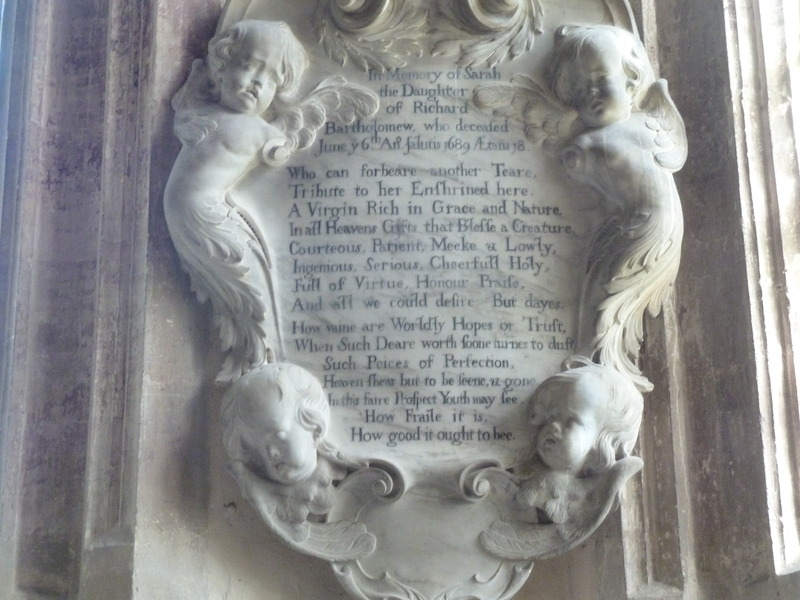 In Memory of Sarah
the Daughter
of Richard
Bartholomew, who deceased
June yͤ 6ᵗʰ Anͦ. ſalutis 1689 Ætatis 18.
Who can forbeare another Teare,
Tribute to her Enſhrined here.
A Virgin Rich in Grace and Nature,
In all Heavens Gifts, that Bleſſe a Creature.
Courteous, Patient, Meeke & Lowly,
Ingenious, Serious, Cheerfull Holy,
Full of Virtue, Honour Praiſe,
And all we could deſire, But dayes.
How vaine are Worldly Hopes or Truſt,
When Such Deare worth ſoone turnes to duſt,
Such Peices of Perfection,
Heaven ſhews but to be ſeene, & gone,
In this faire Proſpect Youth may ſee,
How Fraile it is,
How good it ought to bee.